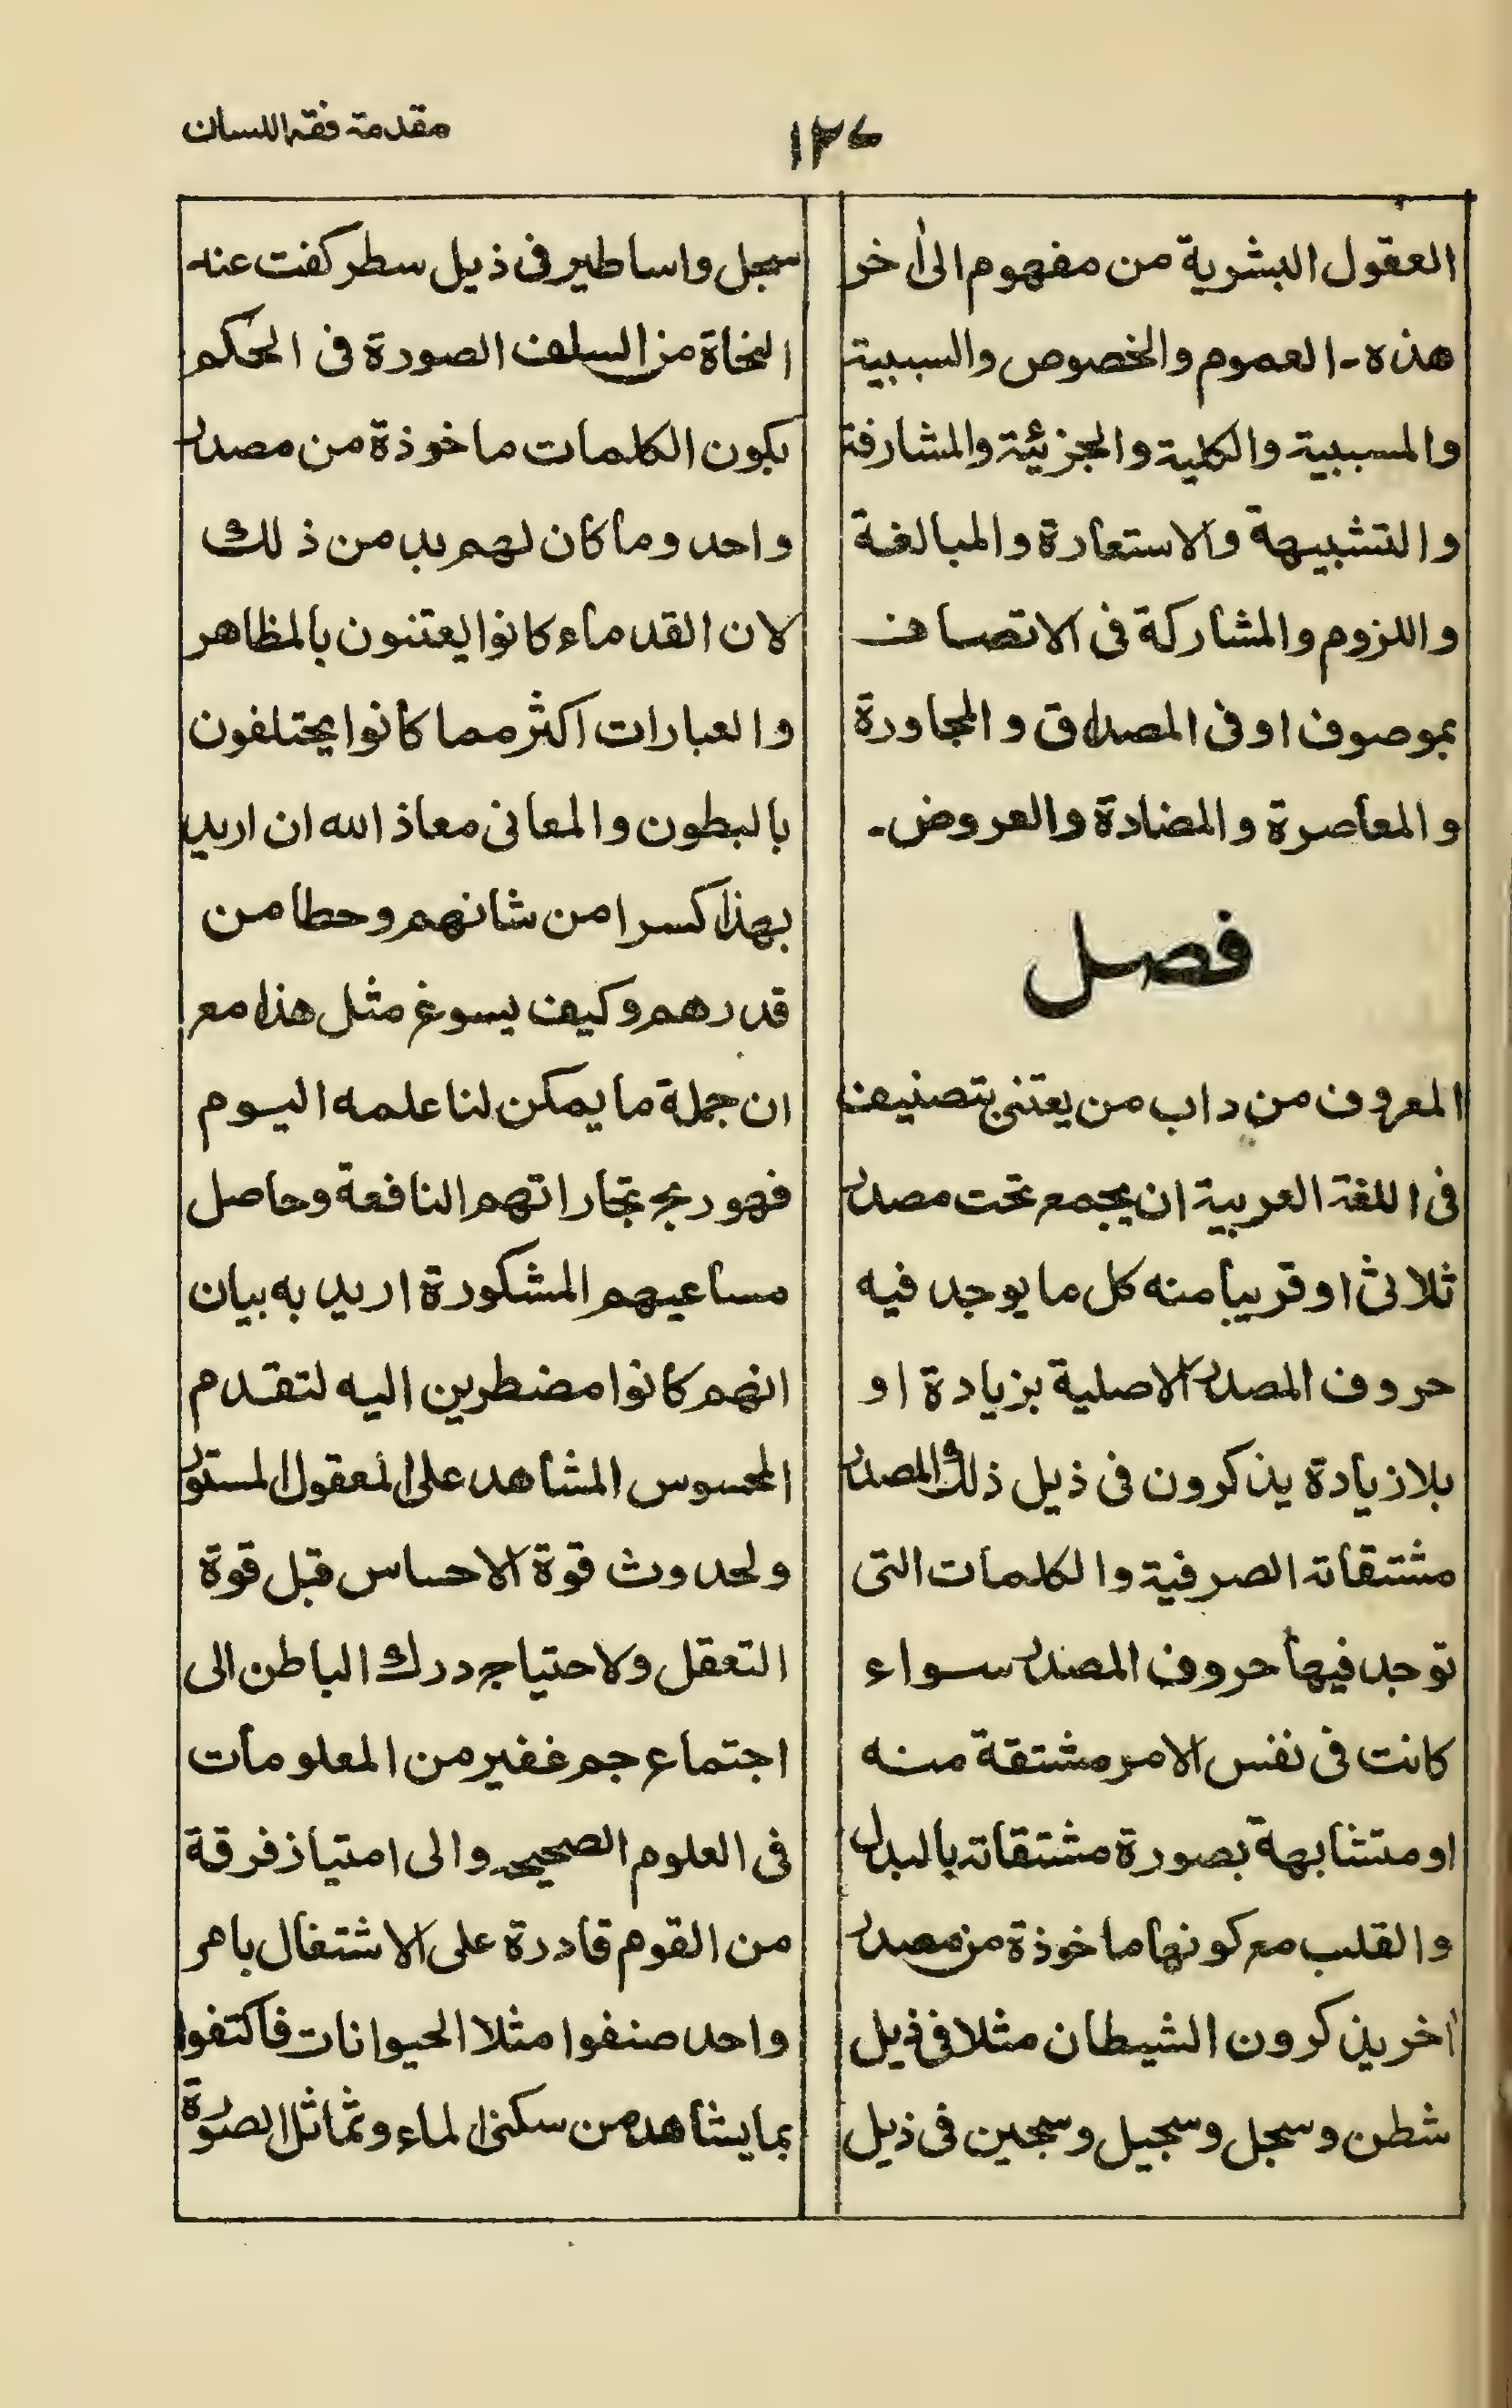 مقدمة فقه اللسان
العقول البشرية من مفهوم الى أخر
هذه - العموم والخصوص والسببية
والمسببية والكلية والجزئية والمشارفة
والتشبيهة والاستعارة والمبالغة
واللزوم والمشاركة فى الاتصاف
بموصوف او فى المصداق والمجاورة
والمعاصرة والمضادة والعروض -
فصل
المعروف من داب من يعتنى بتصنيف
فى اللغة العربية ان يجمع تحت مصدر
ثلاثى او قريبا منه كل ما يوجد فيه
حروف المصدر الاصلية بزيادة او
بلا زيادة يذكرون فى ذيل ذلك المصدر
مشتقاته الصرفية والكلمات التى
توجد فيها حروف المصدر سواء
كانت فى نفس الامر مشتقة منه
او متشابهة بصورة مشتقاته بالبدل
والقلب مع كونها ماخوذة من مصدر
أخر يذكرون الشيطان مثلا فى ذيل
شطن وسجل وسجيل وسجين فى ذيل
سجل واساطير فى ذيل سطر كفت عنه
النحاة من السلف الصورة فى الحكم
بكون الكلمات ماخوذة من مصدر
واحد وما كان لهم بد من ذلك
لان القدماء كانوا يعتنون بالمظاهر
والعبارات اكثر مما كانوا يحتلفون
بالبطون والمعانى معاذ الله ان اريد
بهذا كسرا من شانهم وحطا من
قدرهم وكيف يسوغ مثل هذا مع
ان جملة ما يمكن لنا علمه اليوم
فهو ربح تجاراتهم النافعة وحاصل
مساعيهم المشكورة اريد به بيان
انهم كانوا مضطرين اليه لتقدم
المحسوس المشاهد على المعقول المستور
ولحدوث قوة الاحساس قبل قوة
التعقل ولاحتياج درك الباطن الى
اجتماع جم غفير من المعلومات
فى العلوم الصحيحه والى امتياز فرقة
من القوم قادرة على الاشتغال بامر
واحد صنفوا مثلا الحيوانات فاكتفوا
بما يشاهد من سكنى الماء وتماثل الصورة